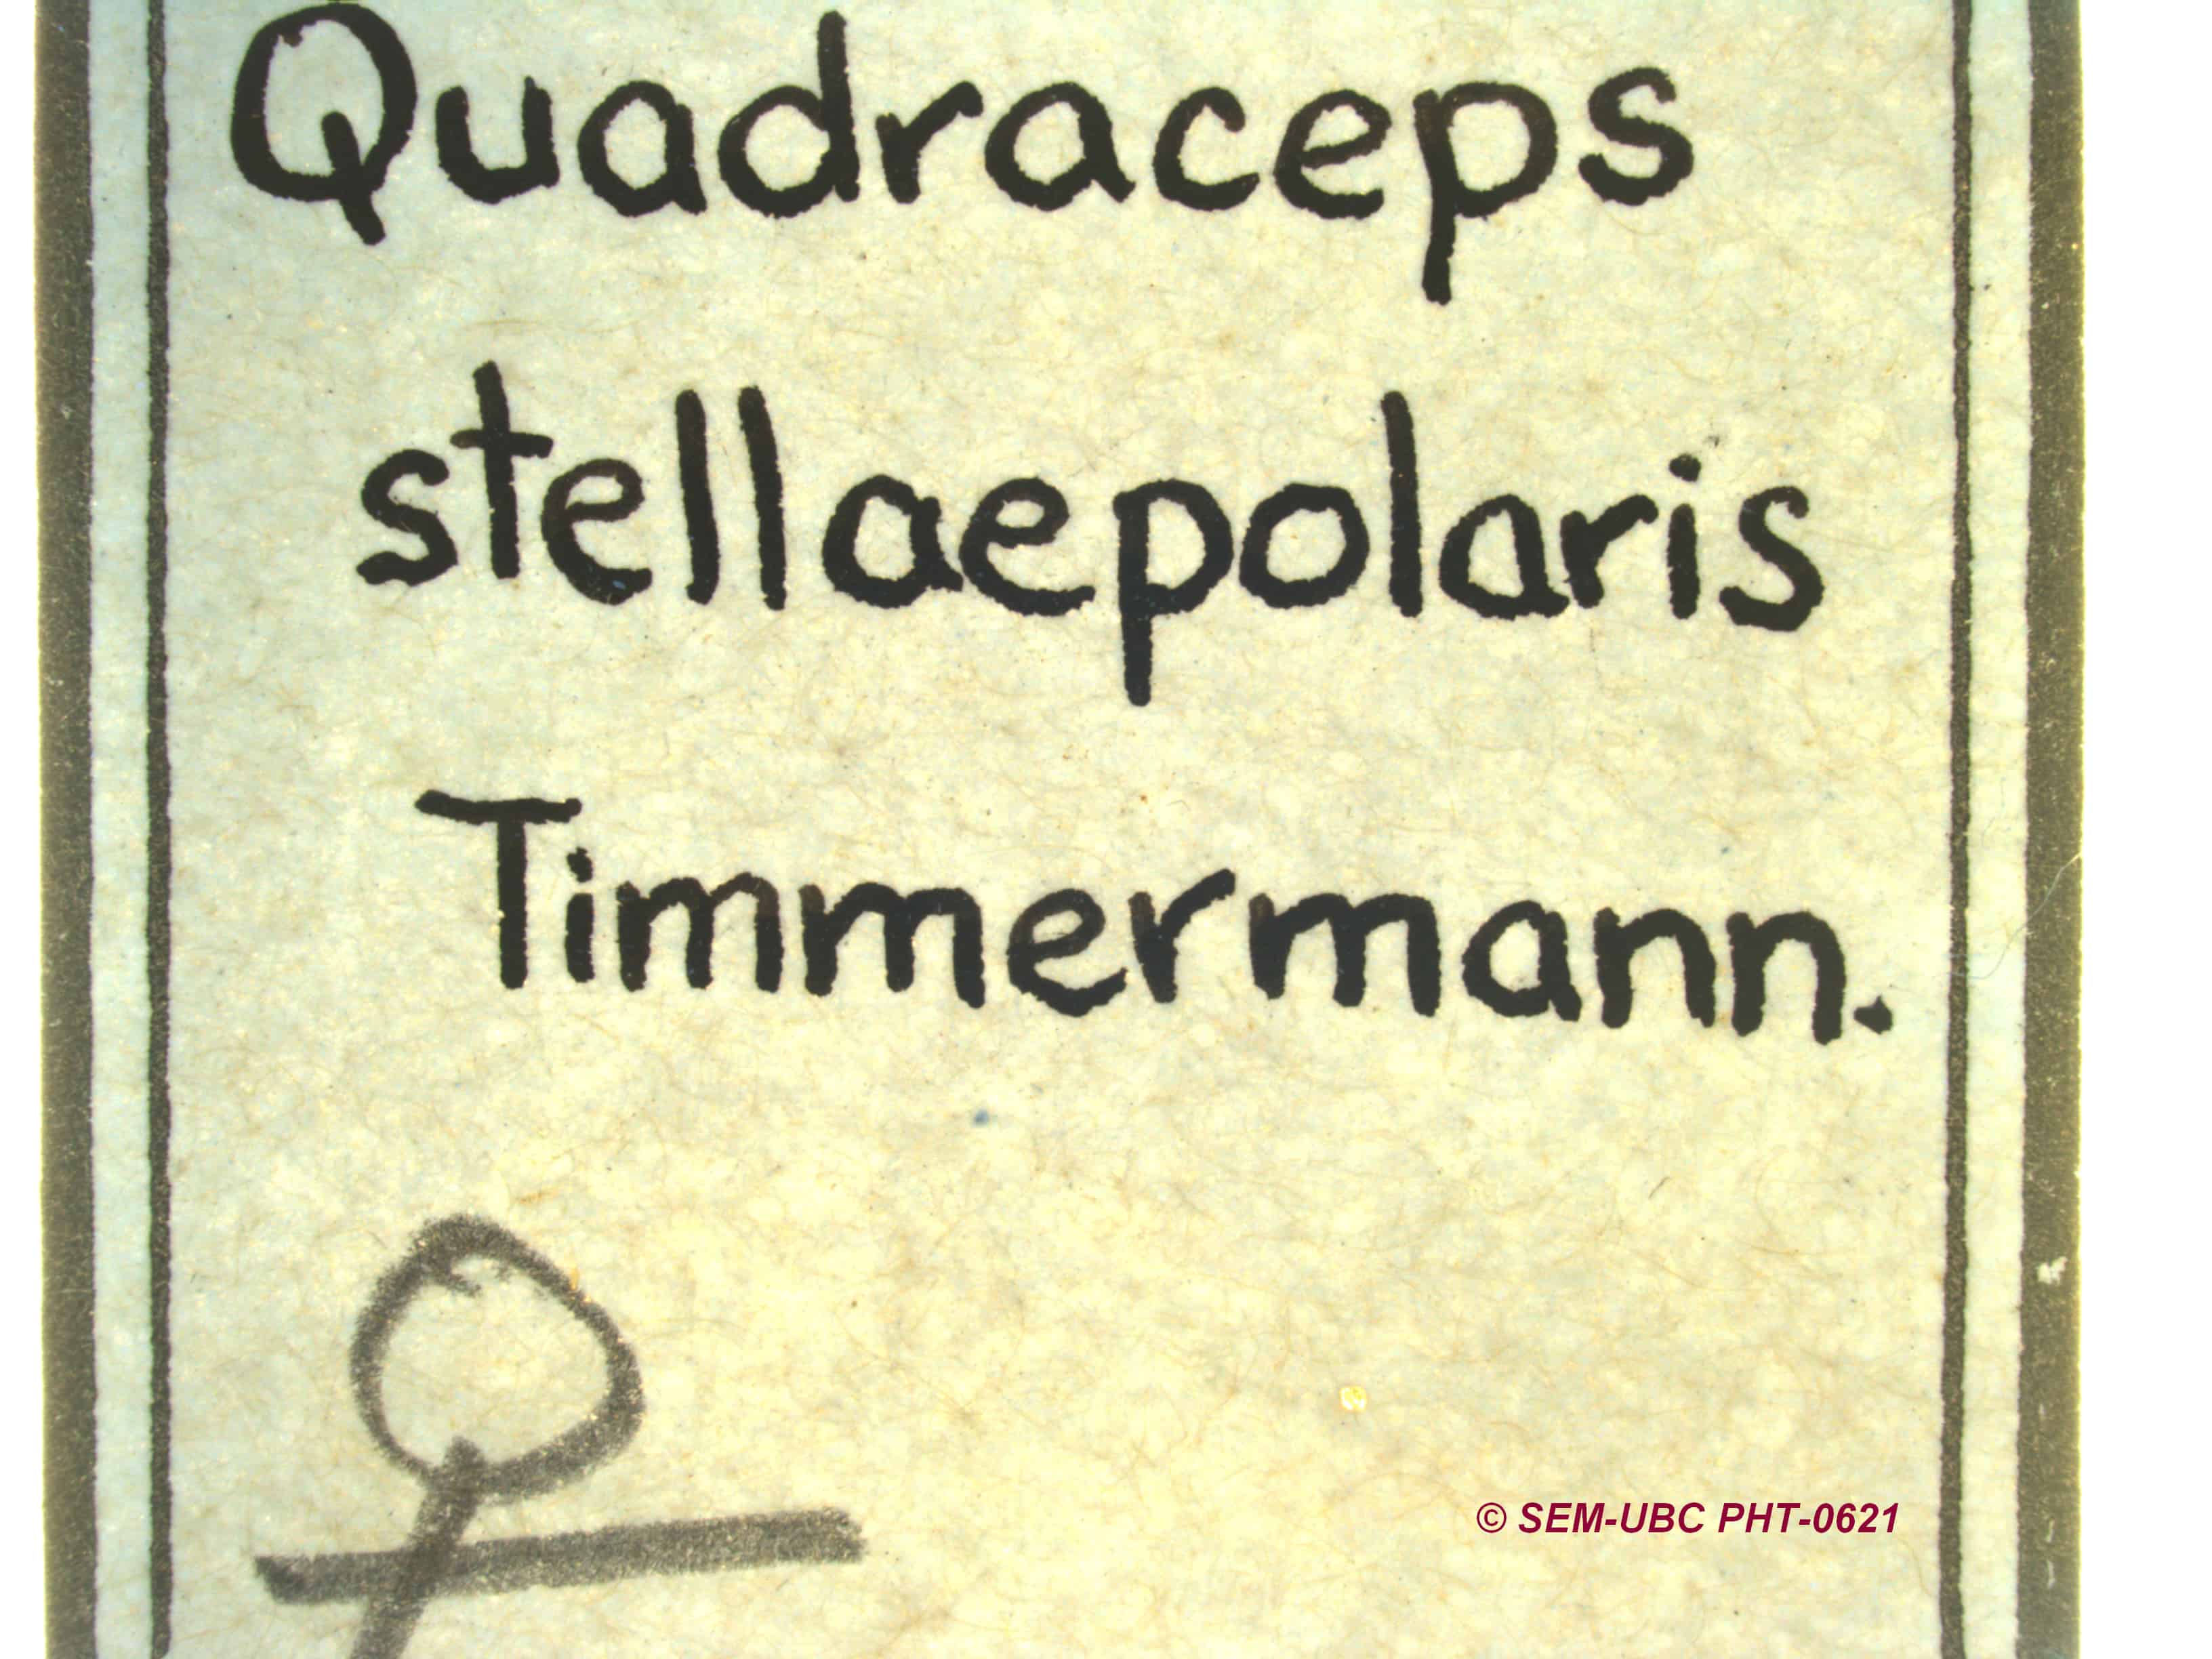 Quadraceps
stellaepolaris
Timmermann.
♀
© SEM-UBC PHT-0621